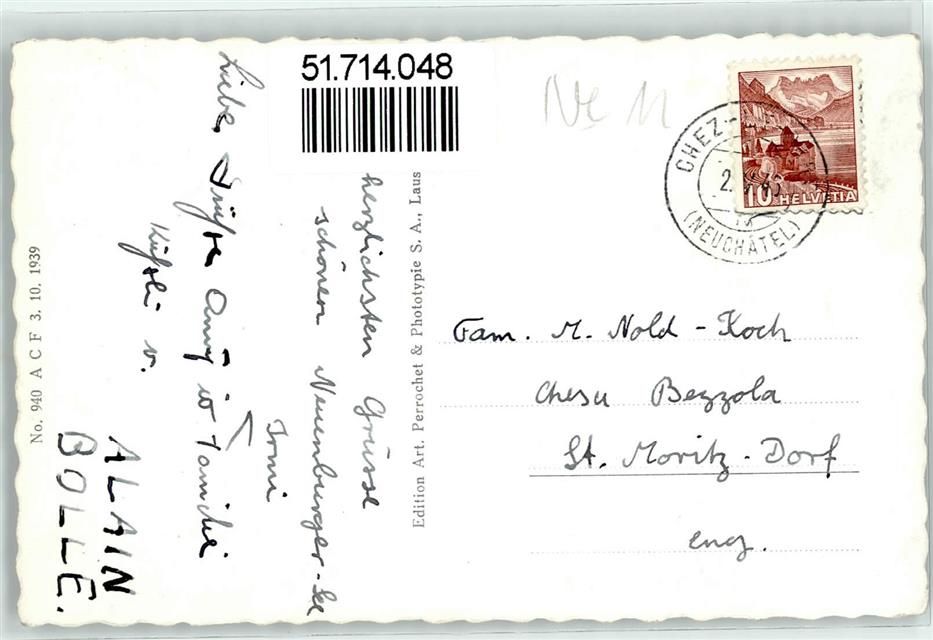 51.714.048
Ne 11
CHEZ-
(NEUCHÂTEL)
10 HELVETIA
herzlichsten Grüsse
schönen Neuenburger-See
Irmi
Liebe Grüsse
Familie
v.
ALAIN
BOLLE.
No. 940 A C F 3. 10. 1939
Edition Art. Perrochet & Phototypie S. A., Laus
Fam. M. Nold-Koch
Chesa Bezzola
St. Moritz-Dorf
eng.